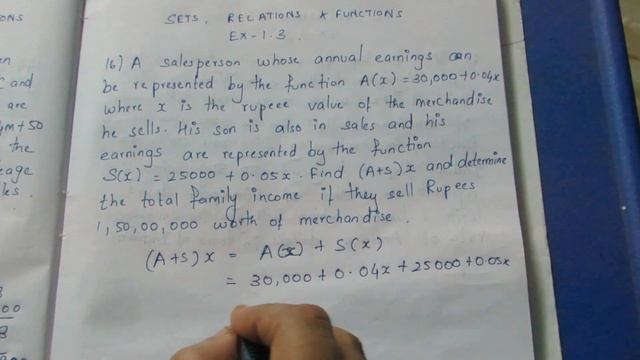 SETS, RELATIONS & FUNCTIONS
EX-1.3
16) A salesperson whose annual earnings can
be represented by the function A(x)=30,000+0.04x
where x is the rupeee value of the merchandise
he sells. His son is also in sales and his
earnings are represented by the function
S(x) = 25000 + 0.05x. Find (A+S)x and determine
the total family income if they sell Rupees
1,50,00,000 worth of merchandise.
(A+S)x = A(x) + S(x)
= 30,000 + 0.04x + 25000 + 0.05x
ONS
en
C and
are
4m+50
the
eage
les.
3
00
8